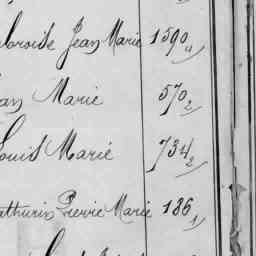 Jean Marie 1590 4
Jean Marie 570 2
Louis Marie 734 2
Mathurin Pierre Marie 186 1